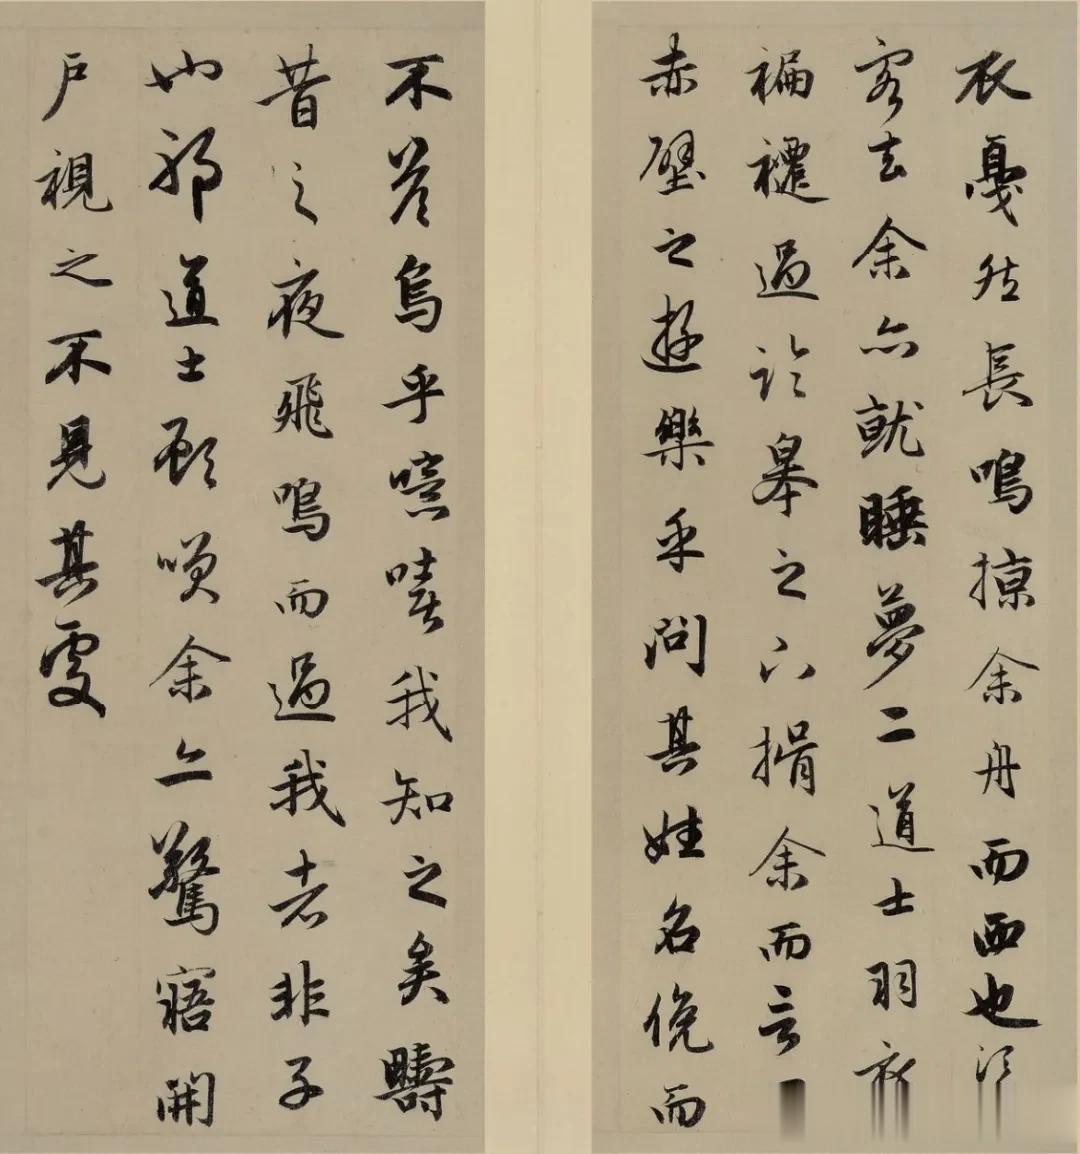 衣戛然長鳴掠余舟而西也須
客去余亦就睡夢二道士羽衣
褊褼過臨皋之下揖余而言
赤壁之遊樂乎問其姓名俛而
不答烏乎噫嘻我知之矣疇
昔之夜飛鳴而過我者非子
也邪道士顧咲余亦驚寤開
户視之不見其處